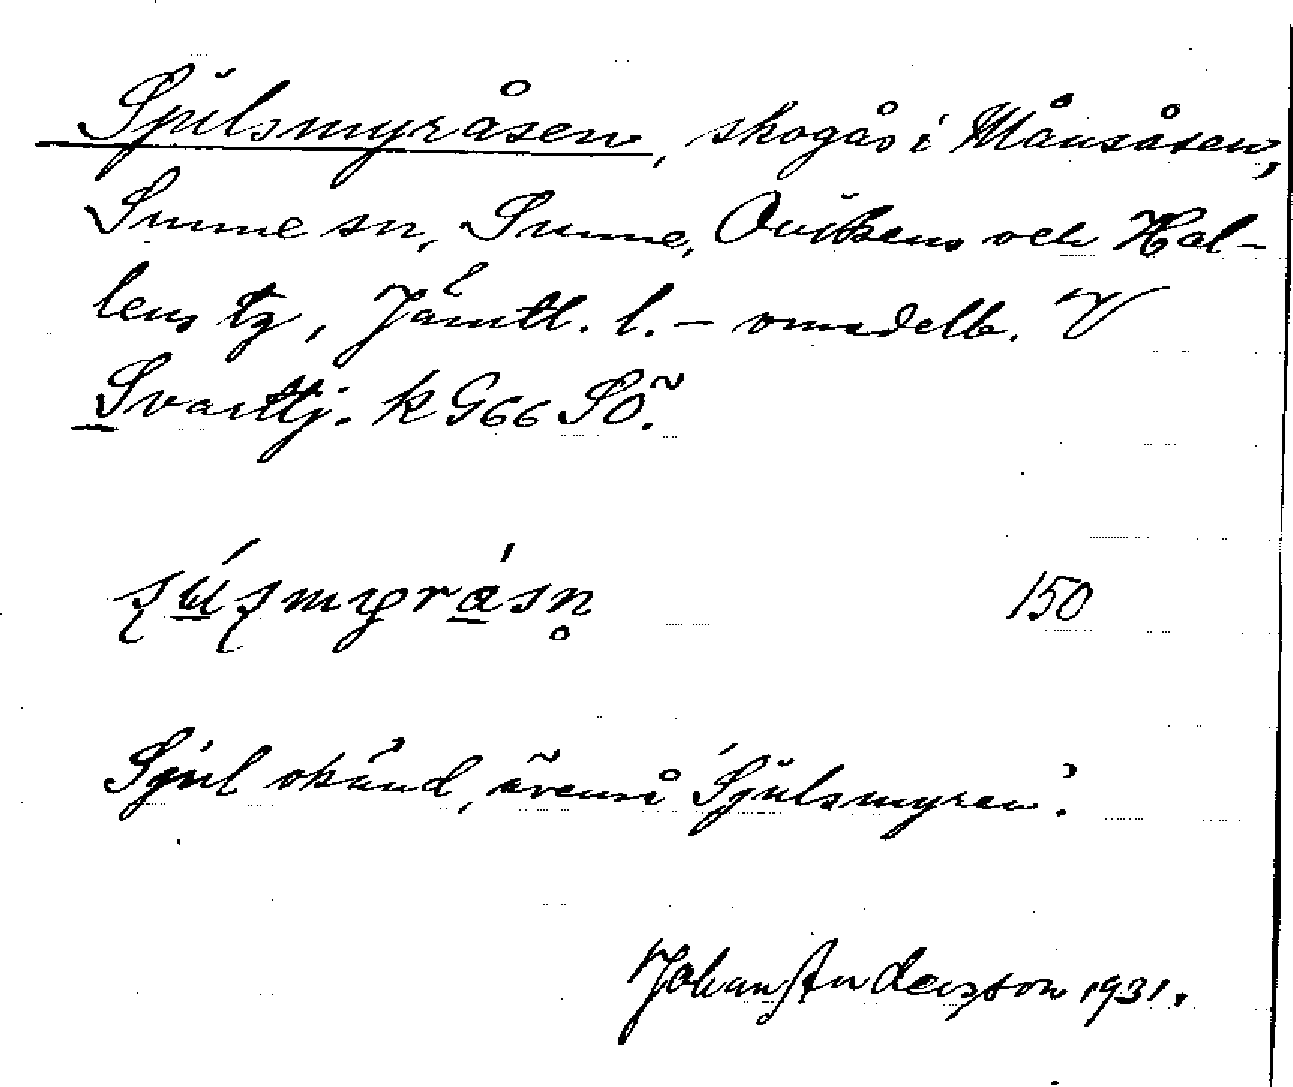 Sjulsmyråsen, skogås i Månsåsen,
Sunne sn, Sunne, Ovikens och Hal-
lens tg, Jämtl. l. – omedelb. V
Svarttj. k G66 SÖ.
150
Sjul okänd, ävenså Sjulsmyren.
Johan Andersson 1931.